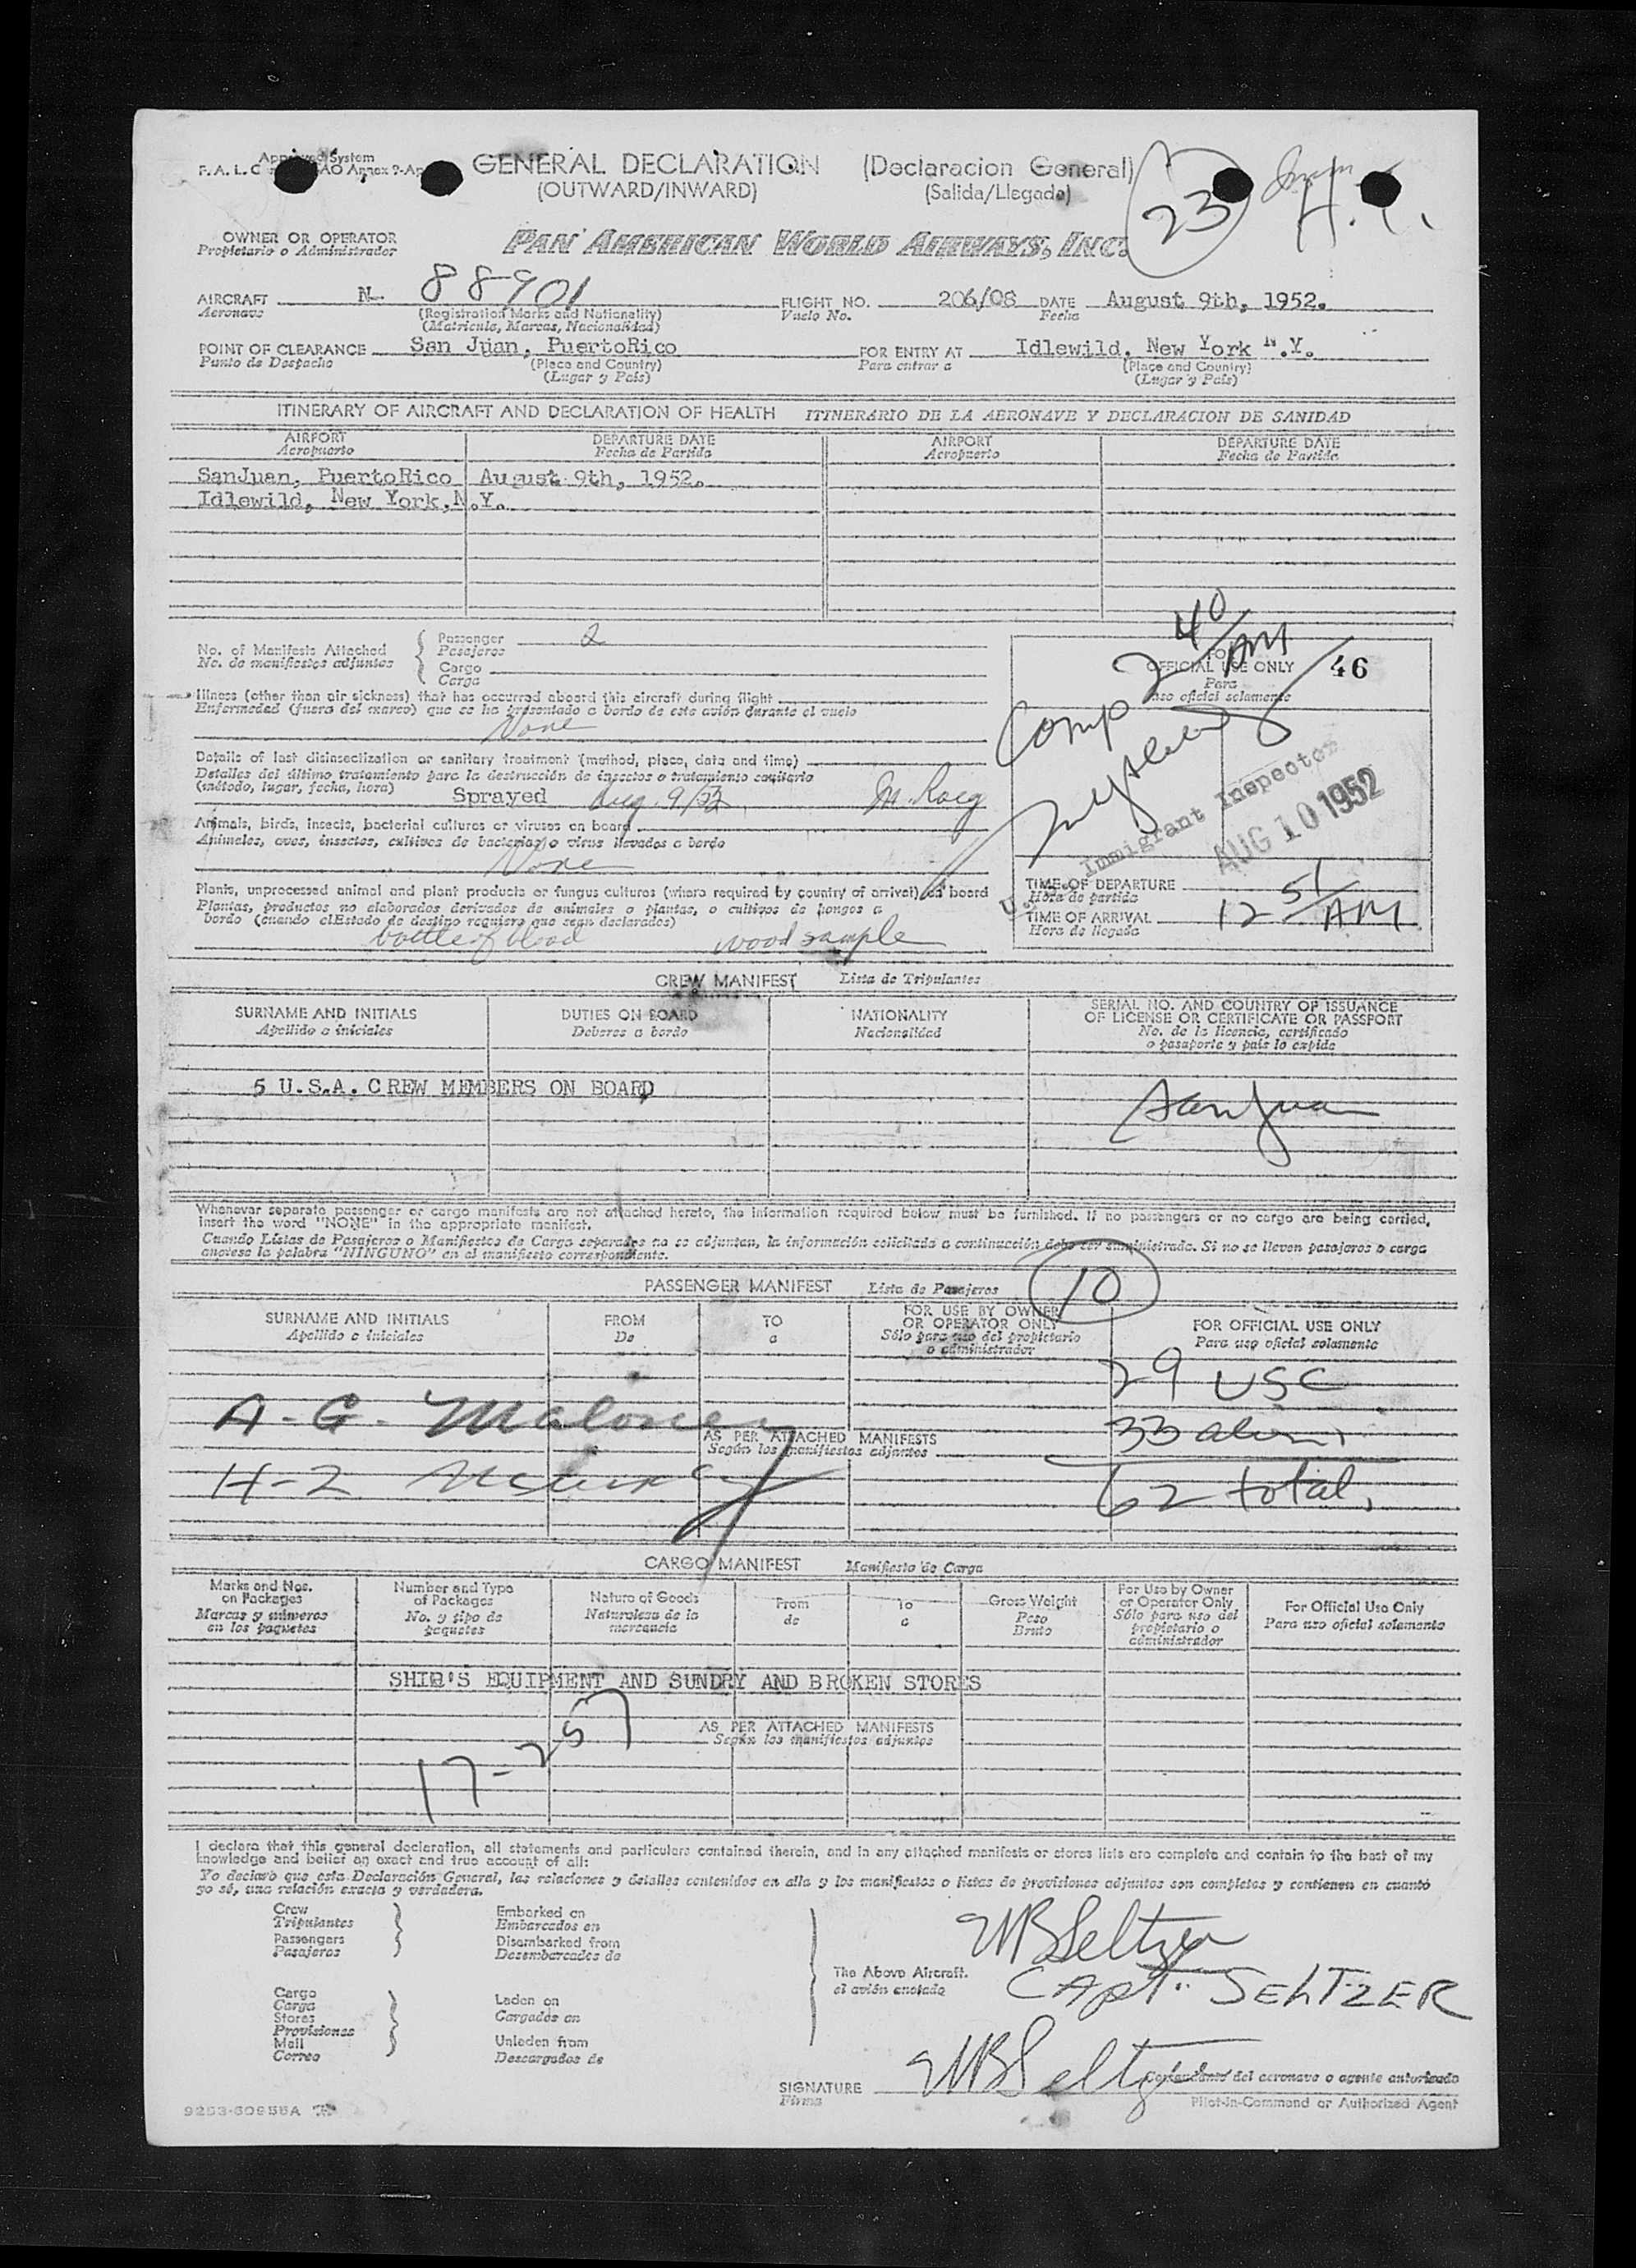 Approved System
GENERAL DECLARATION (Declaracion General)
(OUTWARD/INWARD) (Salida/Llegada)
23
H.
OWNER OR OPERATOR
Propietario o Administrador
PAN AMERICAN WORLD AIRWAYS, INC.
AIRCRAFT N- 88901 FLIGHT NO. 206/08 DATE August 9th, 1952.
Aeronave (Registration Marks and Nationality) Vuelo No. Fecha
(Matricula, Marcas, Nacionalidad)
POINT OF CLEARANCE San Juan, PuertoRico FOR ENTRY AT Idlewild, New York N.Y.
Punto de Despacho (Place and Country) Para entrar a (Place and Country)
(Lugar y Pais) (Lugar y Pais)
ITINERARY OF AIRCRAFT AND DECLARATION OF HEALTH ITINERARIO DE LA AERONAVE Y DECLARACION DE SANIDAD
AIRPORT DEPARTURE DATE AIRPORT DEPARTURE DATE
Aeropuerto Fecha de Partida Aeropuerto Fecha de Partida
SanJuan, PuertoRico August 9th, 1952.
Idlewild, New York,N.Y.
No. of Manifests Attached { Passenger 2
No. de manifiestos adjuntos Pasajeros
Cargo
Carga
FOR
OFFICIAL USE ONLY 46
Para
uso oficial solamente
Comp 2 40/AM
Illness (other than air sickness) that has occurred aboard this aircraft during flight
Enfermedad (fuera del mareo) que se ha presentado a bordo de este avión durante el vuelo
None
Details of last disinsectization or sanitary treatment (method, place, date and time)
Detalles del último tratamiento para la destrucción de insectos o tratamiento sanitario
(método, lugar, fecha, hora) Sprayed Aug. 9/52 M. Roig
U.S. Immigrant Inspector
AUG 10 1952
Animals, birds, insects, bacterial cultures or viruses on board
Animales, aves, insectos, cultivos de bacterias o virus llevados a bordo
None
Plants, unprocessed animal and plant products or fungus cultures (where required by country of arrival) on board
Plantas, productos no elaborados derivados de animales o plantas, o cultivos de hongos a
bordo (cuando elEstado de destino requiere que sean declarados)
bottle of blood wood sample
TIME OF DEPARTURE
Hora de partida
TIME OF ARRIVAL 12 51/AM
Hora de llegada
CREW MANIFEST Lista de Tripulantes
SURNAME AND INITIALS DUTIES ON BOARD NATIONALITY SERIAL NO. AND COUNTRY OF ISSUANCE
Apellido e iniciales Deberes a bordo Nacionalidad OF LICENSE OR CERTIFICATE OR PASSPORT
No. de la licencia, certificado
o pasaporte y pais lo expide
5 U.S.A. CREW MEMBERS ON BOARD
San Juan
Whenever separate passenger or cargo manifests are not attached hereto, the information required below must be furnished. If no passengers or no cargo are being carried,
insert the word "NONE" in the appropriate manifest.
Cuando Listas de Pasajeros o Manifiestos de Carga separados no se adjuntan, la información solicitada a continuación debe ser suministrada. Si no se llevan pasajeros o carga
anotese la palabra "NINGUNO" en el manifiesto correspondiente.
PASSENGER MANIFEST Lista de Pasajeros 10
SURNAME AND INITIALS FROM TO FOR USE BY OWNER FOR OFFICIAL USE ONLY
Apellido e iniciales De a OR OPERATOR ONLY Para uso oficial solamente
Sólo para uso del propietario
o administrador
29 USC
A-G- Maloney 33 aliens
AS PER ATTACHED MANIFESTS
Según los manifiestos adjuntos
H-Z 62 total,
CARGO MANIFEST Manifiesto de Carga
Marks and Nos. Number and Type Nature of Goods From To Gross Weight For Use by Owner For Official Use Only
on Packages of Packages Naturaleza de la de a Peso or Operator Only Para uso oficial solamente
Marcas y números No. y tipo de mercancia Bruto Sólo para uso del
en los paquetes paquetes propietario o
administrador
SHIP'S EQUIPMENT AND SUNDRY AND BROKEN STORES
AS PER ATTACHED MANIFESTS
Según los manifiestos adjuntos
17-257
I declare that this general declaration, all statements and particulars contained therein, and in any attached manifests or stores lists are complete and contain to the best of my
knowledge and belief an exact and true account of all:
Yo declaro que esta Declaración General, las relaciones y detalles contenidos en ella y los manifiestos o listas de provisiones adjuntos son completos y contienen en cuanto
yo sé, una relación exacta y verdadera.
Crew Embarked on
Tripulantes Embarcados en
Passengers Disembarked from
Pasajeros Desembarcados de
WBSeltzer
The Above Aircraft.
el avión anotado
CAPT. SELTZER
Cargo
Carga Laden on
Stores Cargados en
Provisiones
Mail Unladen from
Correo Descargados de
SIGNATURE WBSeltzer
Firma
Comandante del aeronave o agente autorizado
Pilot-in-Command or Authorized Agent
9253-60955A